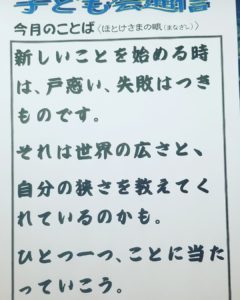 子ども会
今月のことば（ほとけさまの眼（まなざし））
新しいことを始める時
は、戸惑い、失敗はつき
ものです。
それは世界の広さと、
自分の狭さを教えてく
れているのかも。
ひとつ一つ、ことに当た
っていこう。